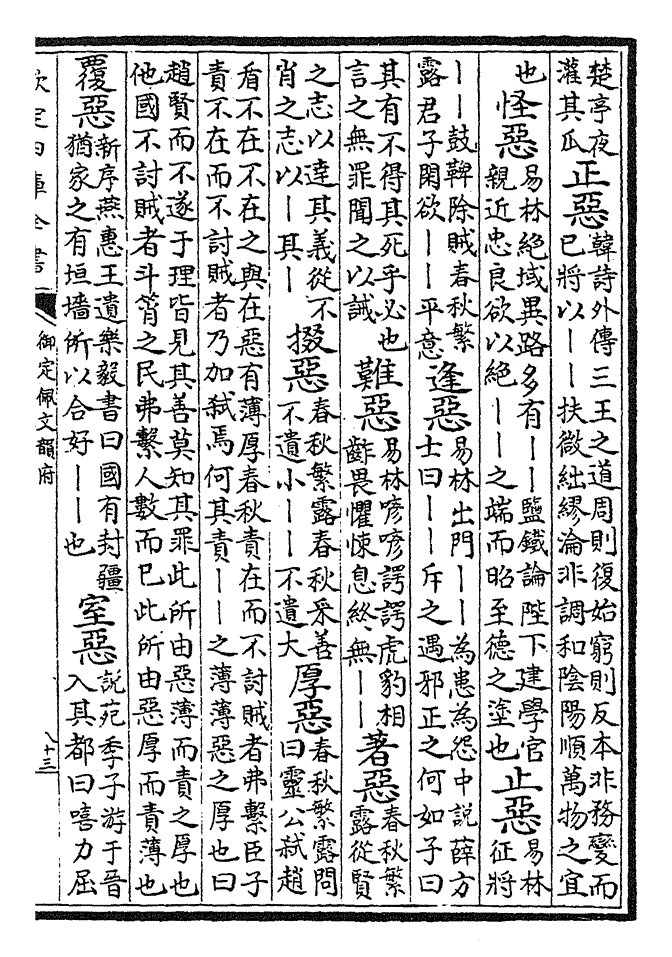 楚亭夜灌其瓜 正惡 韓詩外傳三王之道周則復始窮則反本非務變而已將以丨丨扶微絀繆淪非調和陰陽順萬物之宜
也 怪惡 易林絕域異路多有丨丨鹽鐵論陛下建學官親近忠良欲以絕丨丨之端而昭至德之塗也 止惡 易林征將
丨丨鼓鞞除賊春秋繁露君子閑欲丨丨平意 逢惡 易林出門丨丨為患為怨中說薛方士曰丨丨斥之遇邪正之何如子曰
其有不得其死乎必也言之無罪聞之以誡 難惡 易林喭喭諤諤虎豹相齚畏懼悚息終無丨丨 著惡 春秋繁露從賢
之志以達其義從不肖之志以丨其丨 掇惡 春秋繁露春秋采善不遺小丨丨不遺大 厚惡 春秋繁露問曰靈公弒趙
盾不在不在之與在惡有薄厚春秋責在而不討賊者弗繫臣子責不在而不討賊者乃加弒焉何其責丨丨之薄薄惡之厚也曰
趙賢而不遂于理皆見其善莫知其罪此所由惡薄而責之厚也他國不討賊者斗筲之民弗繫人數而已此所由惡厚而責薄也
覆惡 新序燕惠王遺樂毅書曰國有封疆猶家之有垣墻所以合好丨丨也 室惡 說苑季子游于晉入其都曰嘻力屈
欽定四庫全書
御定佩文韻府
八十三